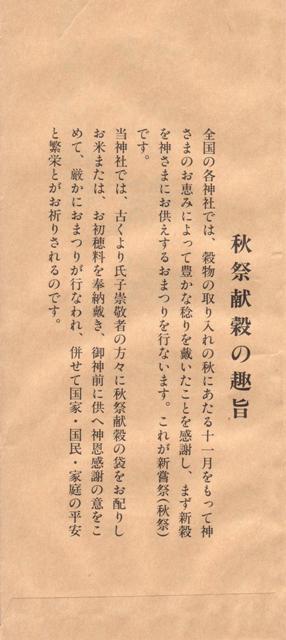 秋祭献穀の趣旨
全国の各神社では、穀物の取り入れの秋にあたる十一月をもって神
さまのお恵みによって豊かな稔りを戴いたことを感謝し、まず新穀
を神さまにお供えするおまつりを行ないます。これが新嘗祭(秋祭)
です。
当神社では、古くより氏子崇敬者の方々に秋祭献穀の袋をお配りし
お米または、お初穂料を奉納戴き、御神前に供へ神恩感謝の意をこ
めて、厳かにおまつりが行なわれ、併せて国家・国民・家庭の平安
と繁栄とがお祈りされるのです。